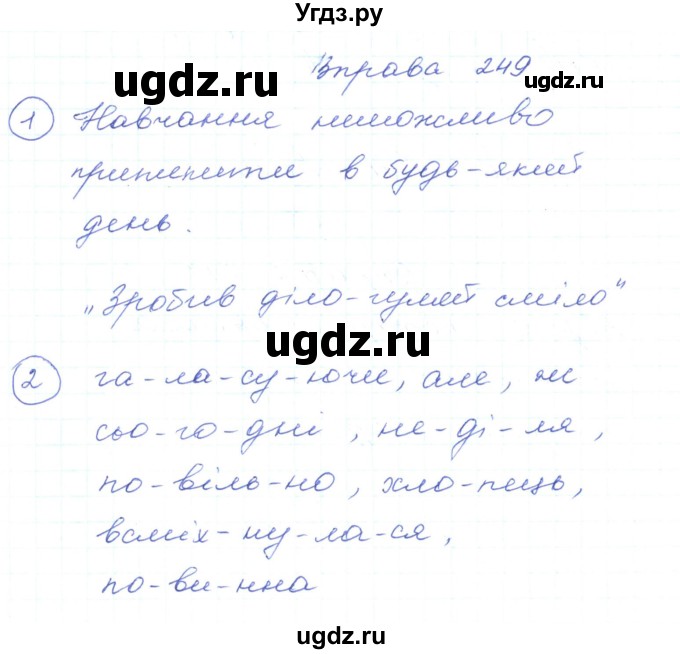 Угдз.ру
ugdz.ru
ugdz.ru
Вправа 249
1 Навчання неможливо
припинити в будь-який
день.
„Зробив діло-гуляй сміло"
ugdz.ru
2 га-ла-су-ючи, але,
сьо-го-дні, не-ді-ля,
по-віль-но, хло-пець,
всміх-ну-ла-ся,
по-ви-нна
ugdz.ru
ugdz.ru